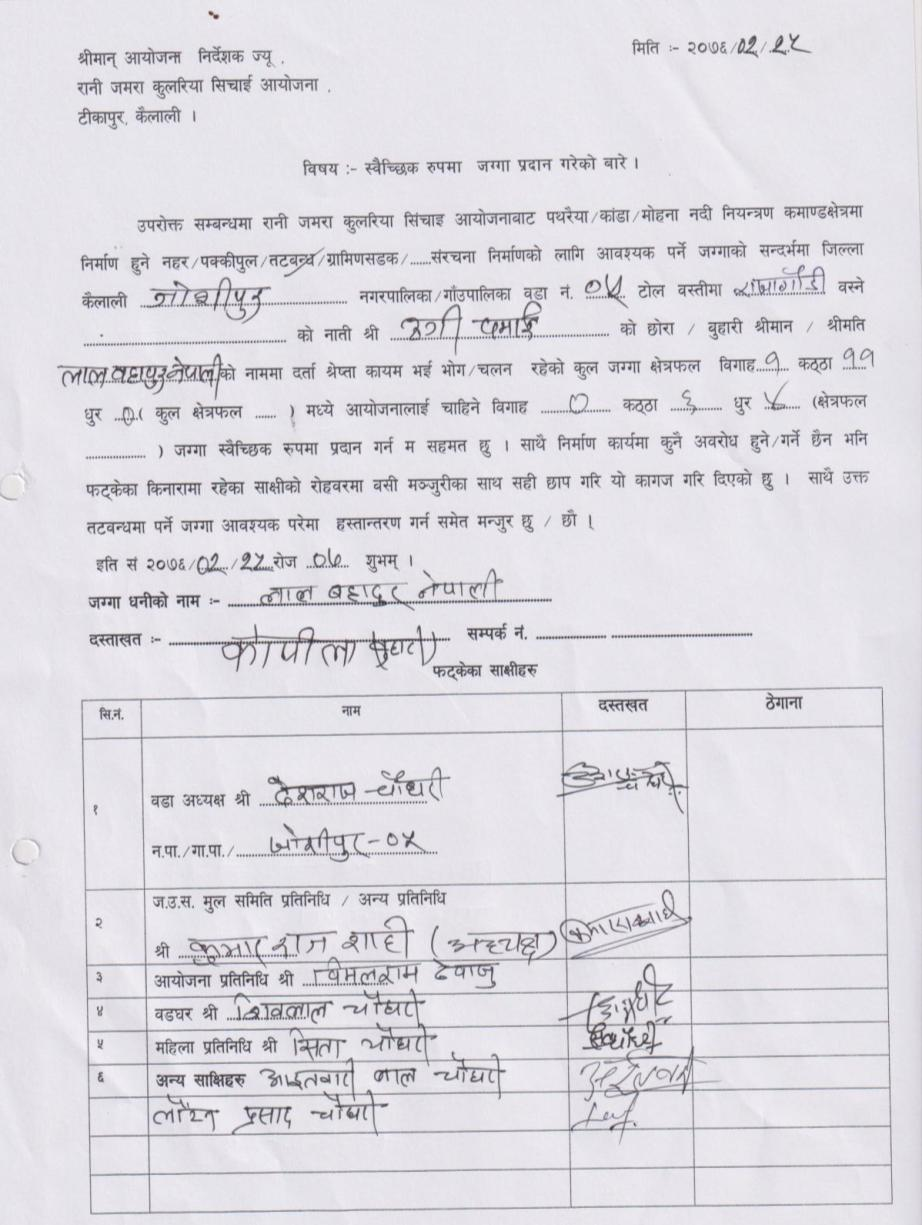 मिति :- २०७६/02/२५
श्रीमान् आयोजना निर्देशक ज्यू .
रानी जमरा कुलरिया सिचाई आयोजना .
टीकापुर, कैलाली ।
विषय :- स्वैच्छिक रुपमा जग्गा प्रदान गरेको बारे ।
उपरोक्त सम्बन्धमा रानी जमरा कुलरिया सिंचाइ आयोजनाबाट पथरैया/कांडा/मोहना नदी नियन्त्रण कमाण्डक्षेत्रमा
निर्माण हुने नहर/पक्कीपुल/तटबन्ध/ग्रामिणसडक/......संरचना निर्माणको लागि आवश्यक पर्ने जग्गाको सन्दर्भमा जिल्ला
कैलाली जोशीपुर नगरपालिका/गाँउपालिका वडा नं. ०५ टोल वस्तीमा वस्ने
को नाती श्री को छोरा / बुहारी श्रीमान / श्रीमति
लाल बहादुर नेपालीको नाममा दर्ता श्रेष्ता कायम भई भोग/चलन रहेको कुल जग्गा क्षेत्रफल विगाह १ कठ्ठा ११
धुर ०( कुल क्षेत्रफल ...... ) मध्ये आयोजनालाई चाहिने विगाह ० कठ्ठा ६ धुर ४ (क्षेत्रफल
.................. ) जग्गा स्वैच्छिक रुपमा प्रदान गर्न म सहमत छु । साथै निर्माण कार्यमा कुनै अवरोध हुने/गर्ने छैन भनि
फट्केका किनारामा रहेका साक्षीको रोहवरमा वसी मञ्जुरीका साथ सही छाप गरि यो कागज गरि दिएको छु । साथै उक्त
तटवन्धमा पर्ने जग्गा आवश्यक परेमा हस्तान्तरण गर्न समेत मन्जुर छु / छौ ।
इति सं २०७६/02/२५ रोज शुभम् ।
जग्गा धनीको नाम :- लाल बहादुर नेपाली
दस्ताखत :- कोपीला (बुहारी) सम्पर्क नं. ................ ................................
फट्केका साक्षीहरु
सि.नं. नाम दस्तखत ठेगाना
१ वडा अध्यक्ष श्री देशराज चौधरी
न.पा./गा.पा./ जोशीपुर-०५
२ ज.उ.स. मुल समिति प्रतिनिधि / अन्य प्रतिनिधि
श्री कुमार राज शाही (अध्यक्ष)
३ आयोजना प्रतिनिधि श्री विमलराम देवाजु
४ वडघर श्री शिवलाल चौधरी
५ महिला प्रतिनिधि श्री सिता चौधरी
६ अन्य साक्षिहरु आइतवारी लाल चौधरी
प्रसाद चौधरी